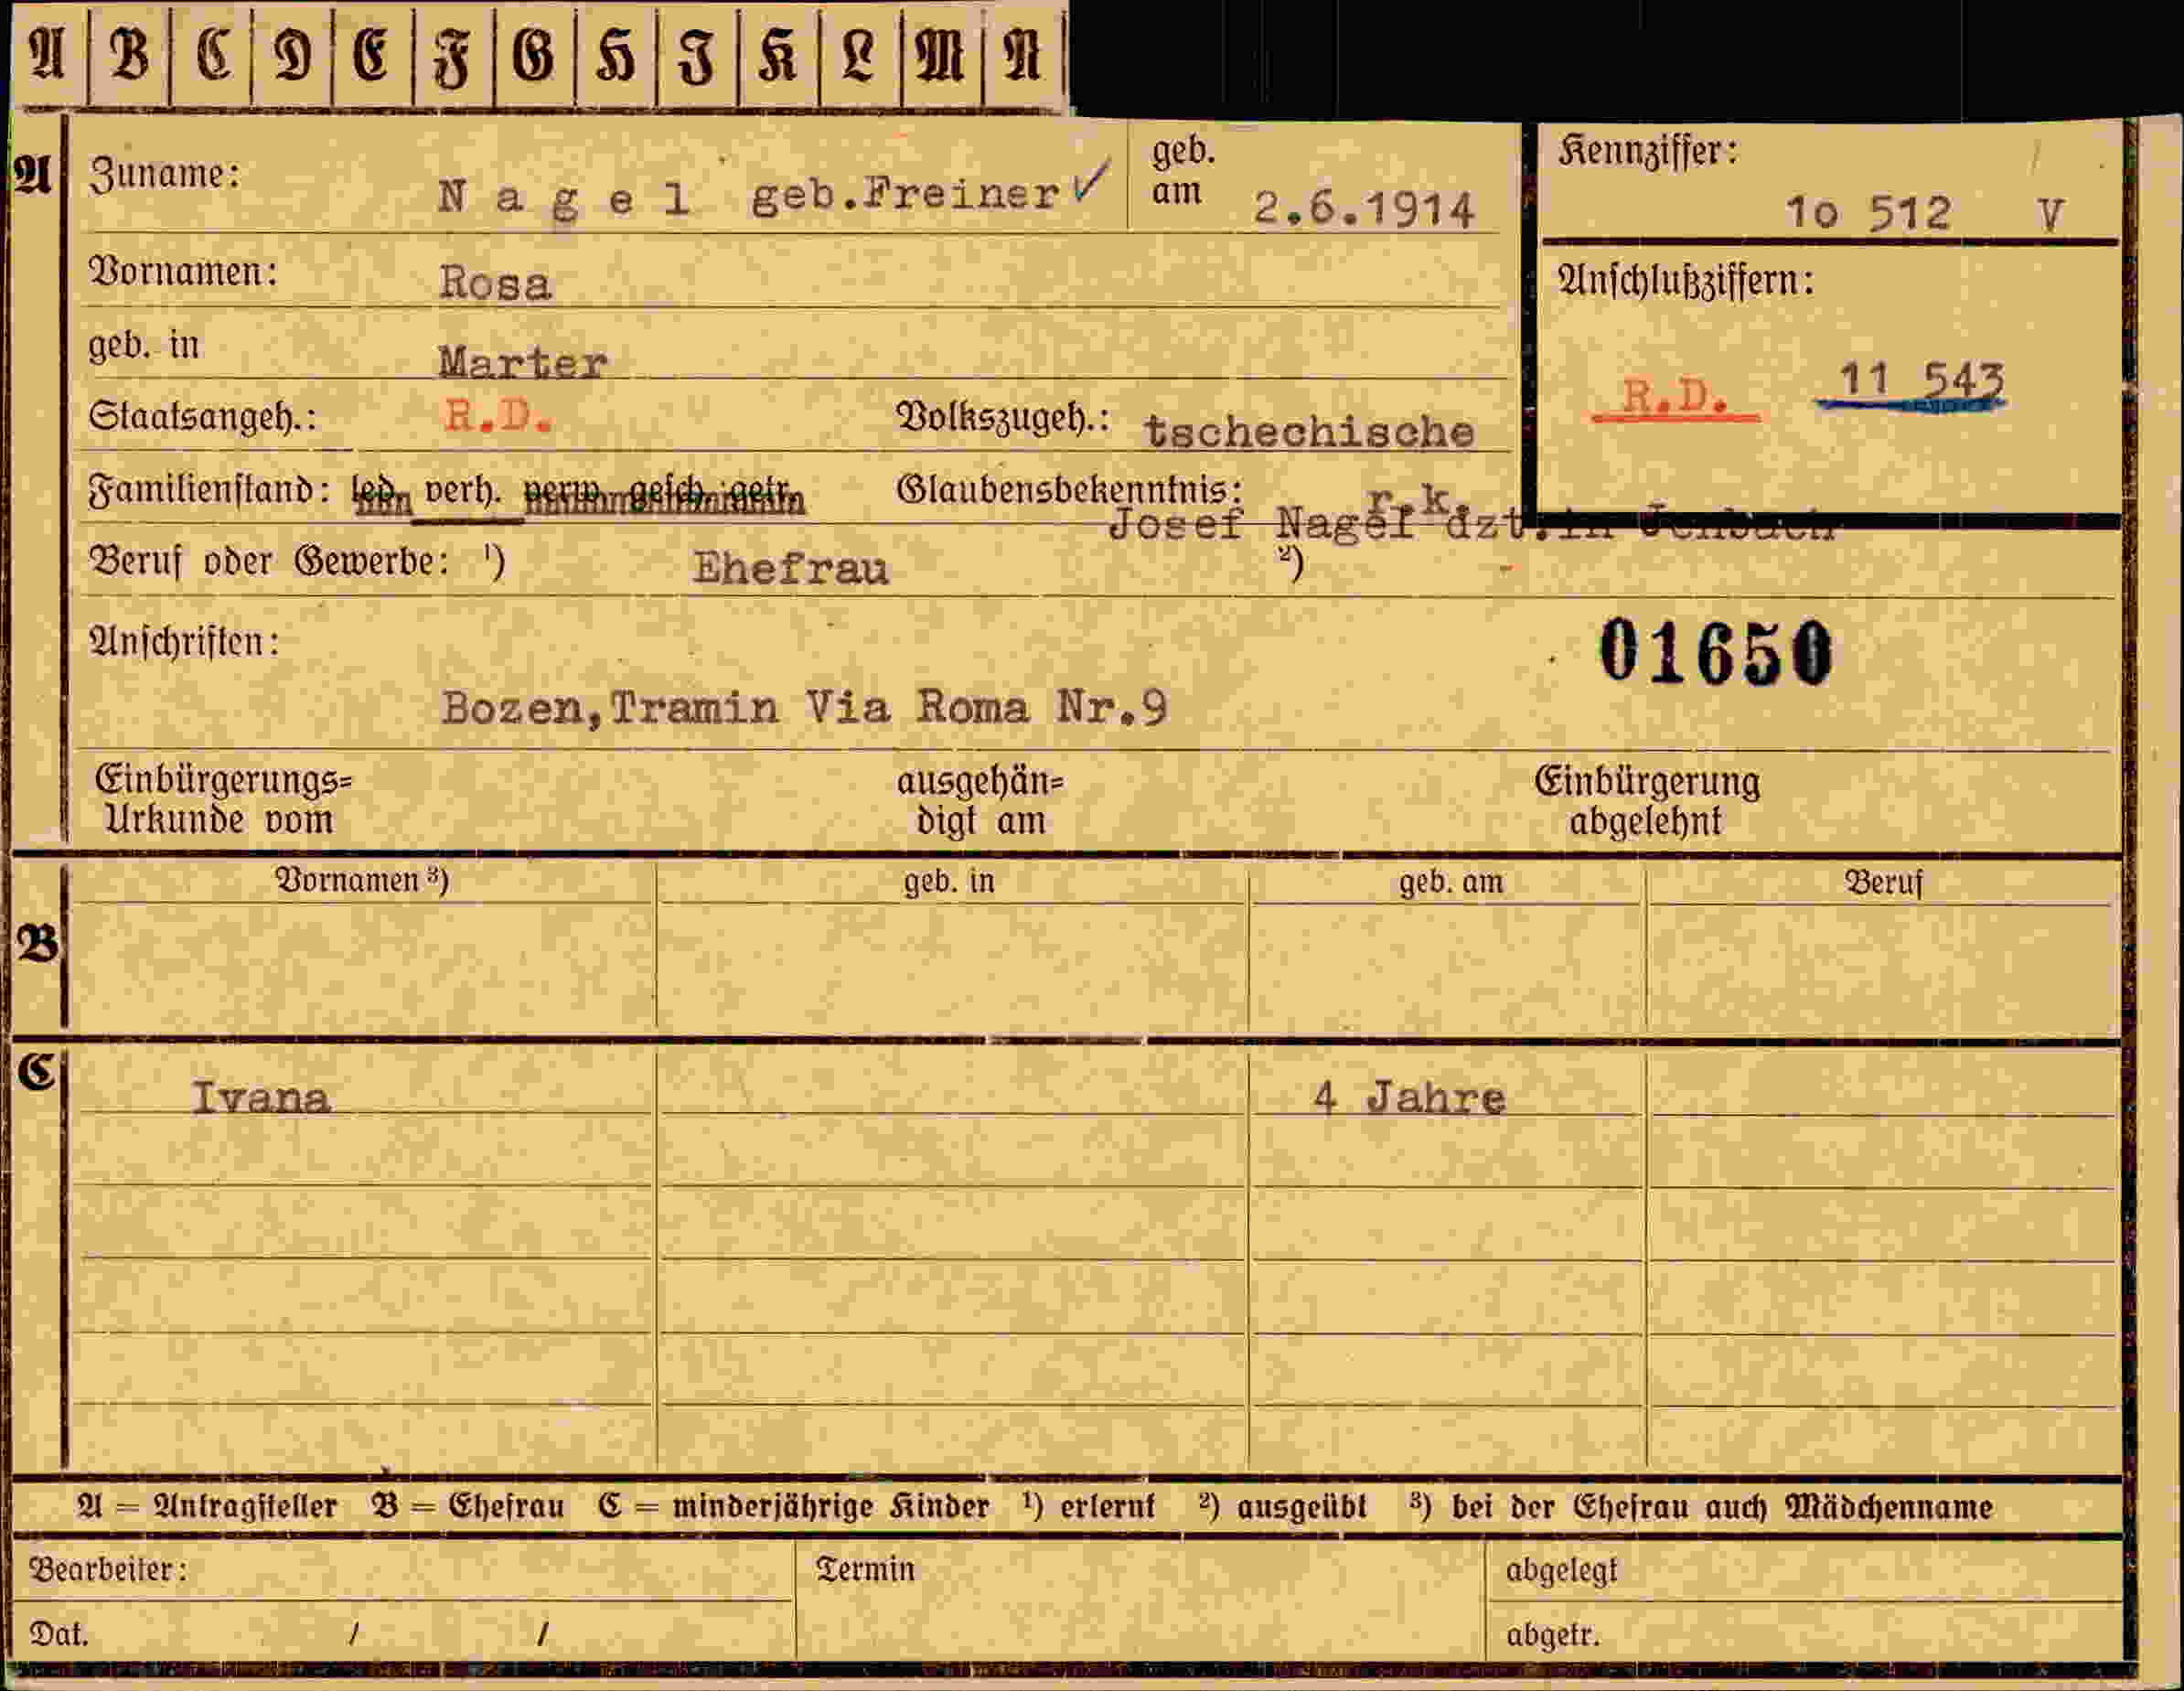 A B C D E F G H I K L M N
A Zuname: N a g e l geb.Freiner ✓ geb. am 2.6.1914
Kennziffer: 1o 512 V
Vornamen: Rosa
Anschlußziffern:
geb. in Marter
R.D. 11 543
Staatsangeh.: R.D. Volkszugeh.: tschechische
Familienstand: led. verh. verw. gesch. getr. Glaubensbekenntnis: r.k.
Josef Nagel dzt.in Jenbach
Beruf oder Gewerbe: ¹) Ehefrau ²) -
Anschriften: 01650
Bozen,Tramin Via Roma Nr.9
Einbürgerungs= ausgehän= Einbürgerung
Urkunde vom digt am abgelehnt
Vornamen ³) geb. in geb. am Beruf
B
C Ivana 4 Jahre
A = Antragsteller B = Ehefrau C = minderjährige Kinder ¹) erlernt ²) ausgeübt ³) bei der Ehefrau auch Mädchenname
Bearbeiter: Termin abgelegt
Dat. / / abgetr.